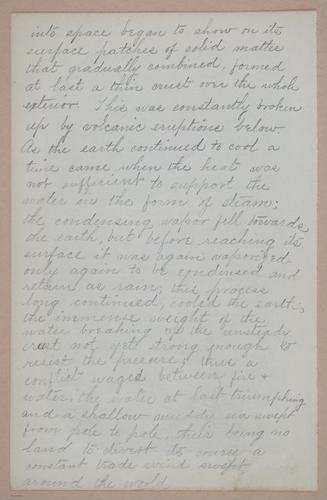 into space began to show on its
surface patches of solid matter
that gradually combined, formed
at last a thin crust over the whole
exterior. This was constantly broken
up by volcanic eruptions below.
As the earth continued to cool a
time came when the heat was
not sufficient to support the
water in the form of steam;
the condensing vapor fell towards
the earth, but before reaching its
surface it was again vaporized
only again to be condensed and
return as rain; this process
long continued, cooled the earth;
the immense weight of the
water breaking up the unsteady
crust not yet strong enough to
resist the pressure; thus a
conflict waged between fire &
water, the water at last triumphing
and a shallow muddy sea swept
from pole to pole, their being no
land to divert its course a
constant trade wind swept
around the world